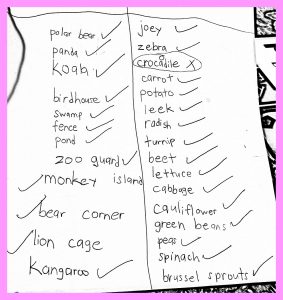 polar bear ✓
panda ✓
Koala ✓
birdhouse ✓
swamp ✓
fence ✓
pond ✓
zoo guard ✓
✓ monkey island
✓ bear corner
✓ lion cage
Kangaroo ✓
joey ✓
zebra ✓
crocodile X
carrot ✓
potato ✓
leek ✓
radish ✓
turnip ✓
beet ✓
lettuce ✓
cabbage ✓
cauliflower ✓
green beans ✓
peas ✓
spinach ✓
brussel sprouts ✓